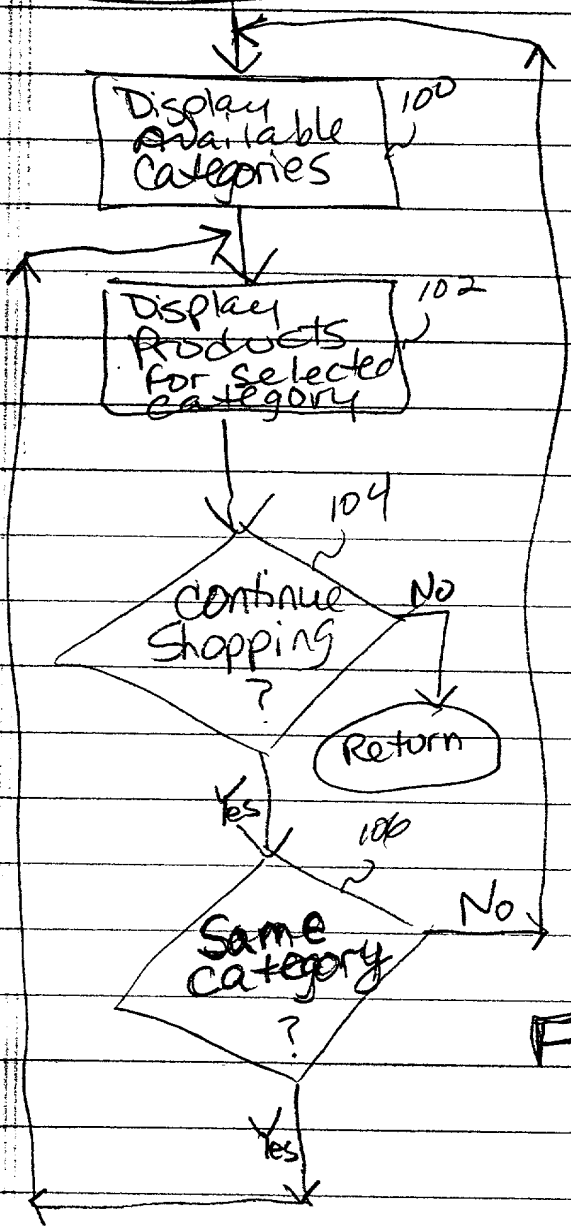 Display
Available
Categories
100
Display
Products
for selected
category
102
104
Continue
Shopping
?
No
Return
Yes
106
Same
category
?
No
Yes